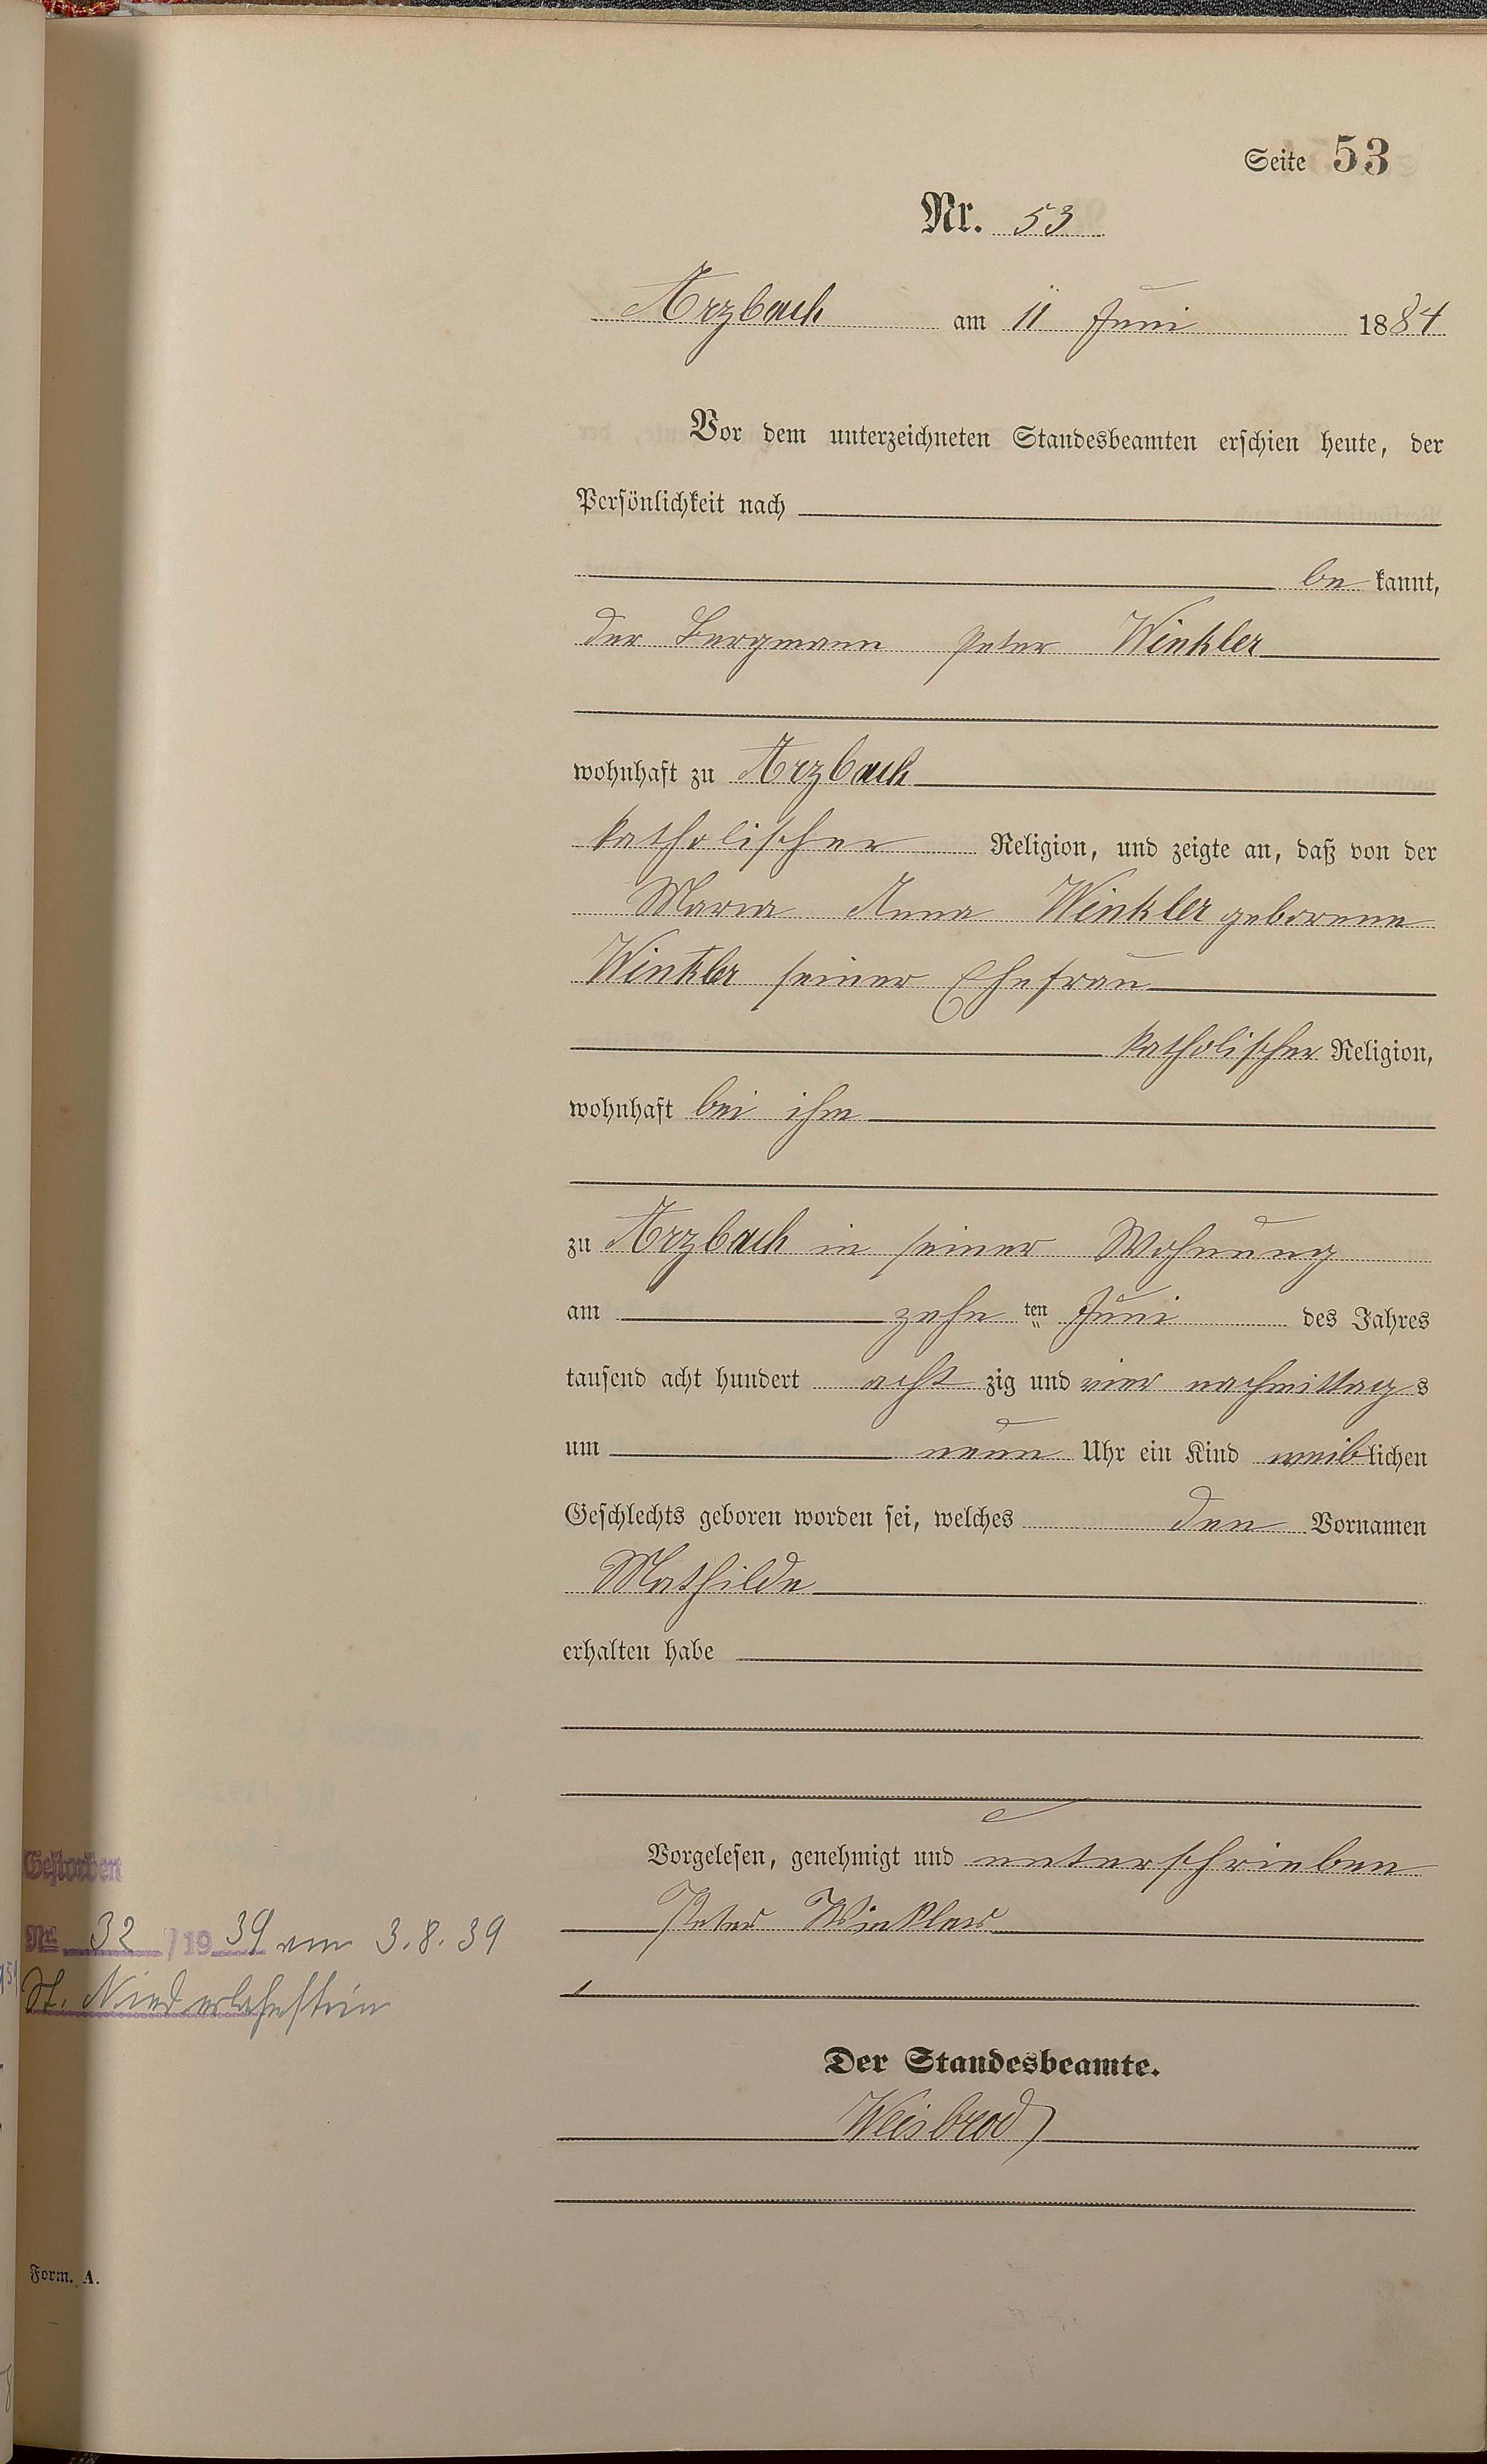 Seite 53
Nr. 53
Arzbach am 11 Juni 1884
Vor dem unterzeichneten Standesbeamten erschien heute, der
Persönlichkeit nach
be kannt,
der Bergmann Peter Winkler
wohnhaft zu Arzbach
katholischer Religion, und zeigte an, daß von der
Maria Anna Winkler geborene
Winkler seiner Ehefrau
katholischer Religion,
wohnhaft bei ihm
zu Arzbach in seiner Wohnung
am zehn ten Juni des Jahres
tausend acht hundert acht zig und vier nachmittags
um neun Uhr ein Kind weiblichen
Geschlechts geboren worden sei, welches den Vornamen
Mathilde
erhalten habe
Vorgelesen, genehmigt und unterschrieben
Peter Winkler
Der Standesbeamte.
Weisbrod
Gestorben
Nr. 32 / 19 39 am 3.8.39
St. Niederlahnstein
Form. A.